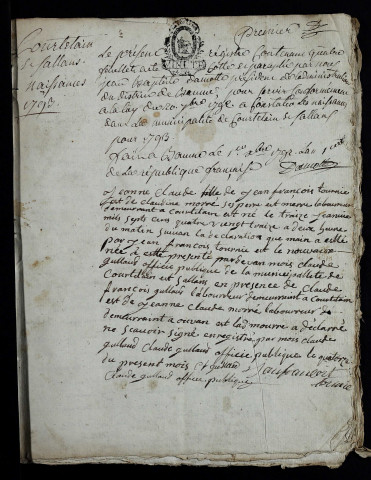 Premier
Courtelain
& Sallans
naissances
1793
Le présent registre Contenant quatre
feuillets a été Cotté et paraphé par nous
jean Baptiste Damotte président de l'administration
du District de Baume, pour servir conformément
a la loy du 20 7bre 1792 a Constater les naissances
dans la municipalité de Courtelain & Sallans
pour 1793
Fait a Baume le 1er Xbre 1792 l'an 1er
de la République française Damotte
jeanne Claude fille de jean françois tournie
est de claudine morre son pere est mere laboureur
demeurant a Courtelain est né le traize janvie
mils sept cens quatre vingt traize a deux heure
du matin suivan la declaration que main a été
par jean françois tournie est le nouveau
née à été presente par devan mois claude
guillaud officie publique de la municipalité de
Courtelain est Sallans en presence de Claude
françois guillaud laboureur demeurrant a Courtelain
est de jeanne claude morre laboureur de
demeurraint a ouvan est lad mourre a declarré
ne scauoir signé enregistre par mois claude
guillaud Claude guillaud officie publique le quatorze
du present mois C f guillaud jean francois
Claude guillaud officie publique tournie